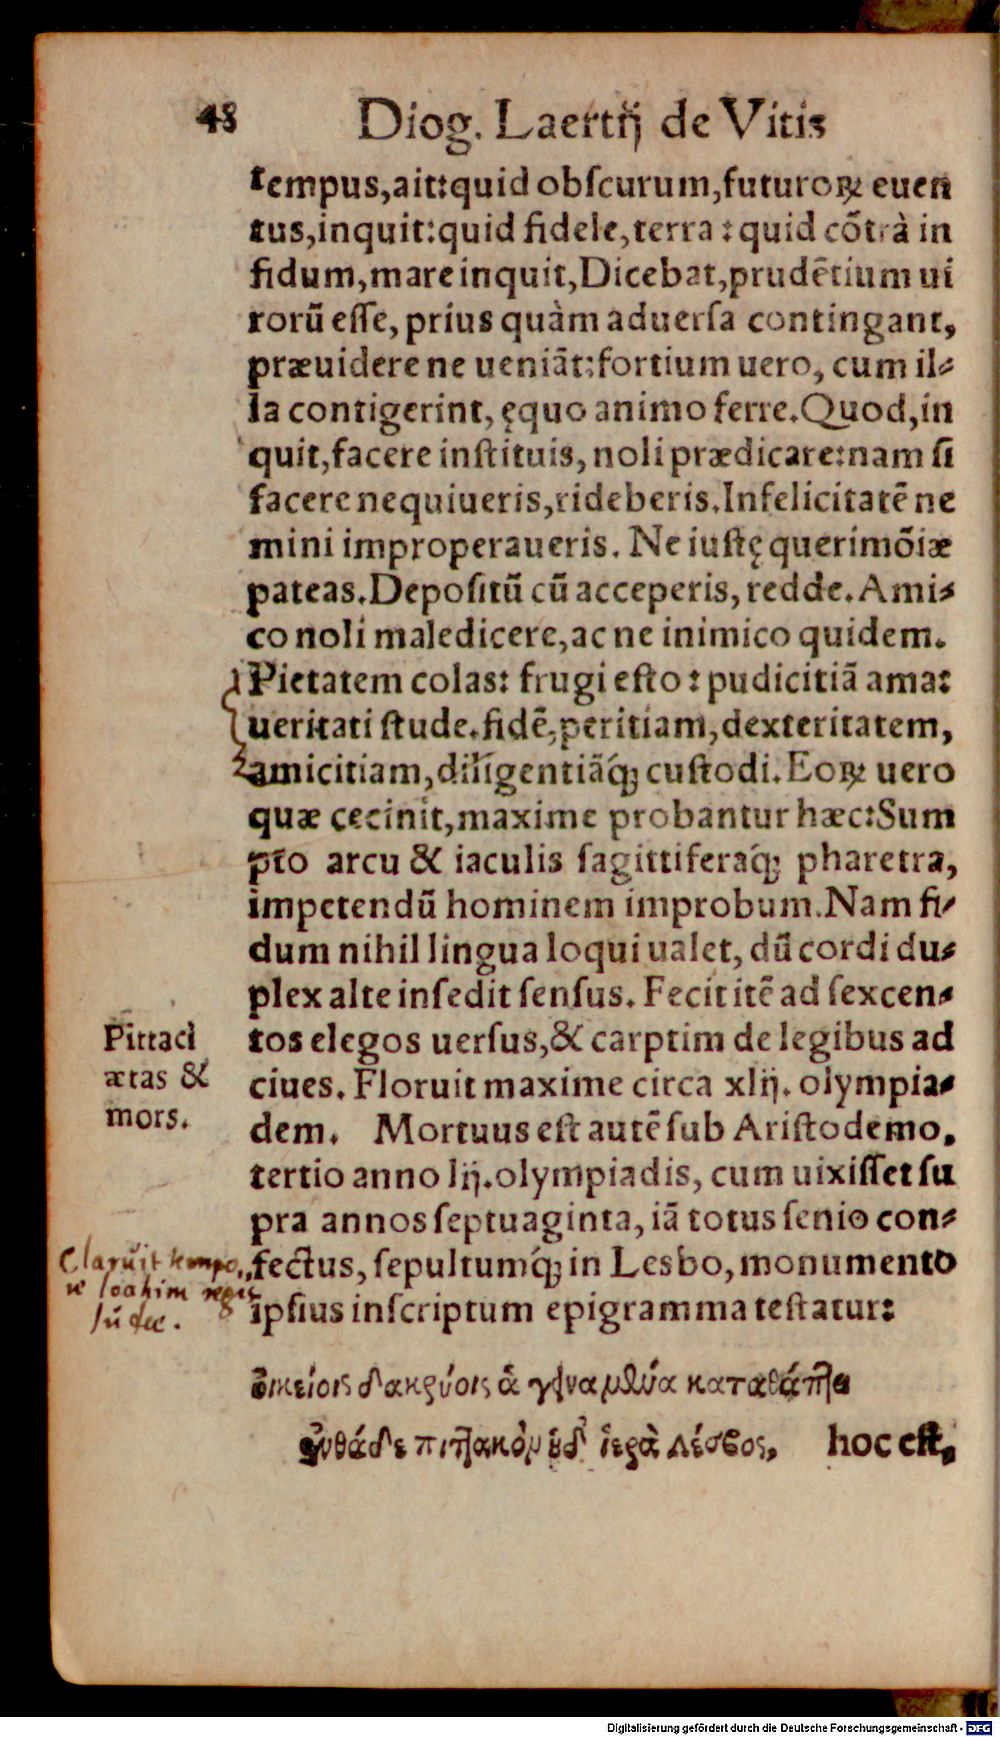 48 Diog. Laertij de Vitis
tempus,ait:quid obſcurum,futuroꝝ euen
tus,inquit:quid fidele,terra : quid cōtrà in
fidum,mare inquit,Dicebat,prudētium ui
rorū eſſe, prius quàm aduerſa contingant,
præuidere ne ueniāt:fortium uero, cum il-
la contigerint, ęquo animo ferre.Quod,in
quit,facere inſtituis, noli prædicare:nam ſi
facere nequiueris,rideberis.Infelicitatē ne
mini improperaueris. Ne iuſtę querimōiæ
pateas.Depoſitū cū acceperis, redde.Ami-
co noli maledicere,ac ne inimico quidem.
Pietatem colas: frugi eſto : pudicitiā ama:
ueritati ſtude.fidē,peritiam,dexteritatem,
amicitiam,diligentiāq́; cuſtodi.Eoꝝ uero
quæ cecinit,maxime probantur hæc:Sum
pto arcu & iaculis ſagittiferaq́; pharetra,
impetendū hominem improbum.Nam fi-
dum nihil lingua loqui ualet, dū cordi du-
plex alte inſedit ſenſus. Fecit itē ad ſexcen-
tos elegos uerſus,& carptim de legibus ad
ciues. Floruit maxime circa xlij. olympia-
dem. Mortuus eſt autē ſub Ariſtodemo.
tertio anno lij.olympiadis, cum uixiſſet ſu
pra annos ſeptuaginta, iā totus ſenio con-
fectus, ſepultumq́; in Lesbo, monumento
ipſius inſcriptum epigramma teſtatur:
Pittaci
ætas &
mors.
Claruit tempo
re Ioahim regis
Iudee.
οἰκείοις δακρύοις ἁ γειναμένα καταθάπτει
ἐνθάδε πιττακὸμ ἥδ᾽ ἱερὰ λέσβος, hoc eſt,
Digitalisierung gefördert durch die Deutsche Forschungsgemeinschaft - DFG